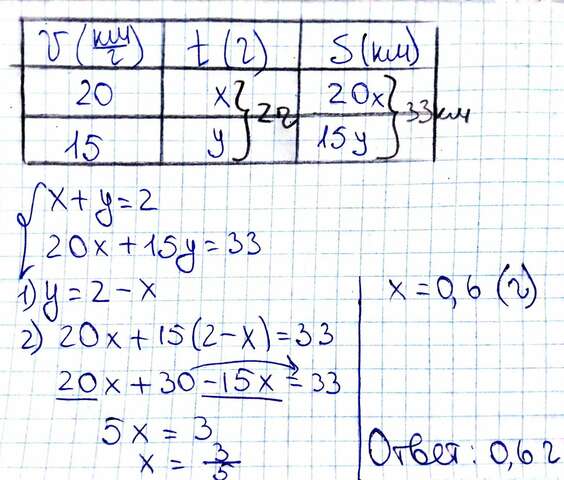 v (км/ч) t (ч) S (км)
20 x 20x
2ч 33 км
15 y 15y
x + y = 2
20x + 15y = 33
1) y = 2 - x
2) 20x + 15(2 - x) = 33
20x + 30 - 15x = 33
5x = 3
x = 3/5
x = 0,6 (ч)
Ответ: 0,6 ч